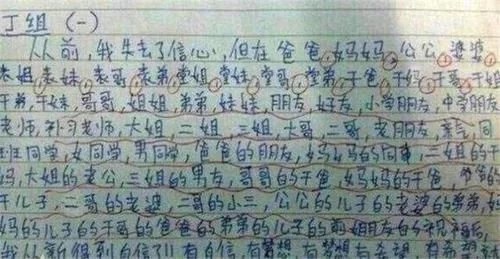 丁组 (一)
从前,我失去了信心,但在爸爸,妈妈,公公,婆婆
表姐,表妹,表哥,表弟,堂姐,堂妹,堂哥,堂弟,干爸,干妈,干哥,干姐
干弟,干妹,哥哥,姐姐,弟弟,妹妹,朋友,好友,小学朋友,中学朋友
老师,补习老师,大姐,二姐,三姐,大哥,二哥,老朋友,同
班同学,女同学,男同学,爸爸的朋友,妈妈的同事,二姐的干
妈,大姐的老公,三姐的男友,哥哥的干爸,妈妈的干爸,爷爷的
干儿子,二哥的老婆,二哥的小三,公公的儿子的老婆的弟弟,
妈的儿子的干哥的爸爸的弟弟的儿子的前姐朋友的
我从新得到自信!!有自信,有梦想,有梦想有希望,有希望